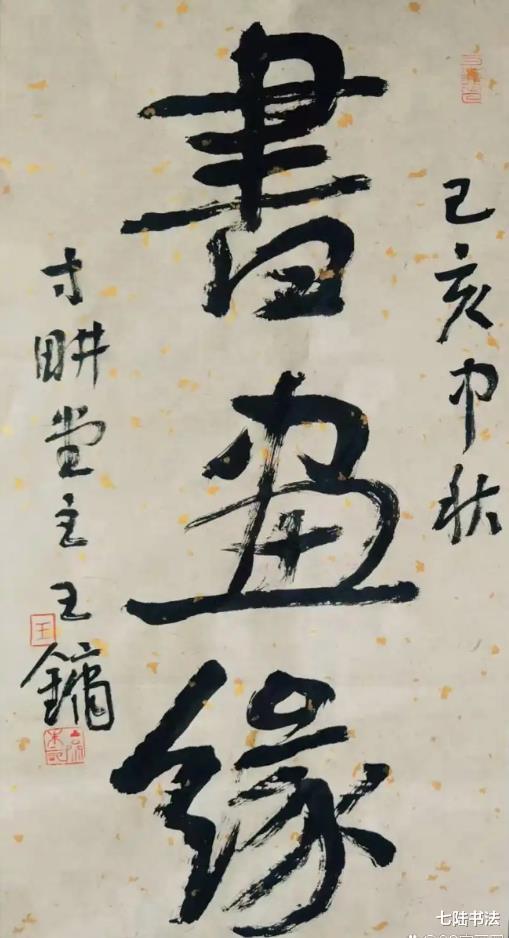 書畫緣
己亥中秋
寸畊堂主王鏞
王
七陆书法